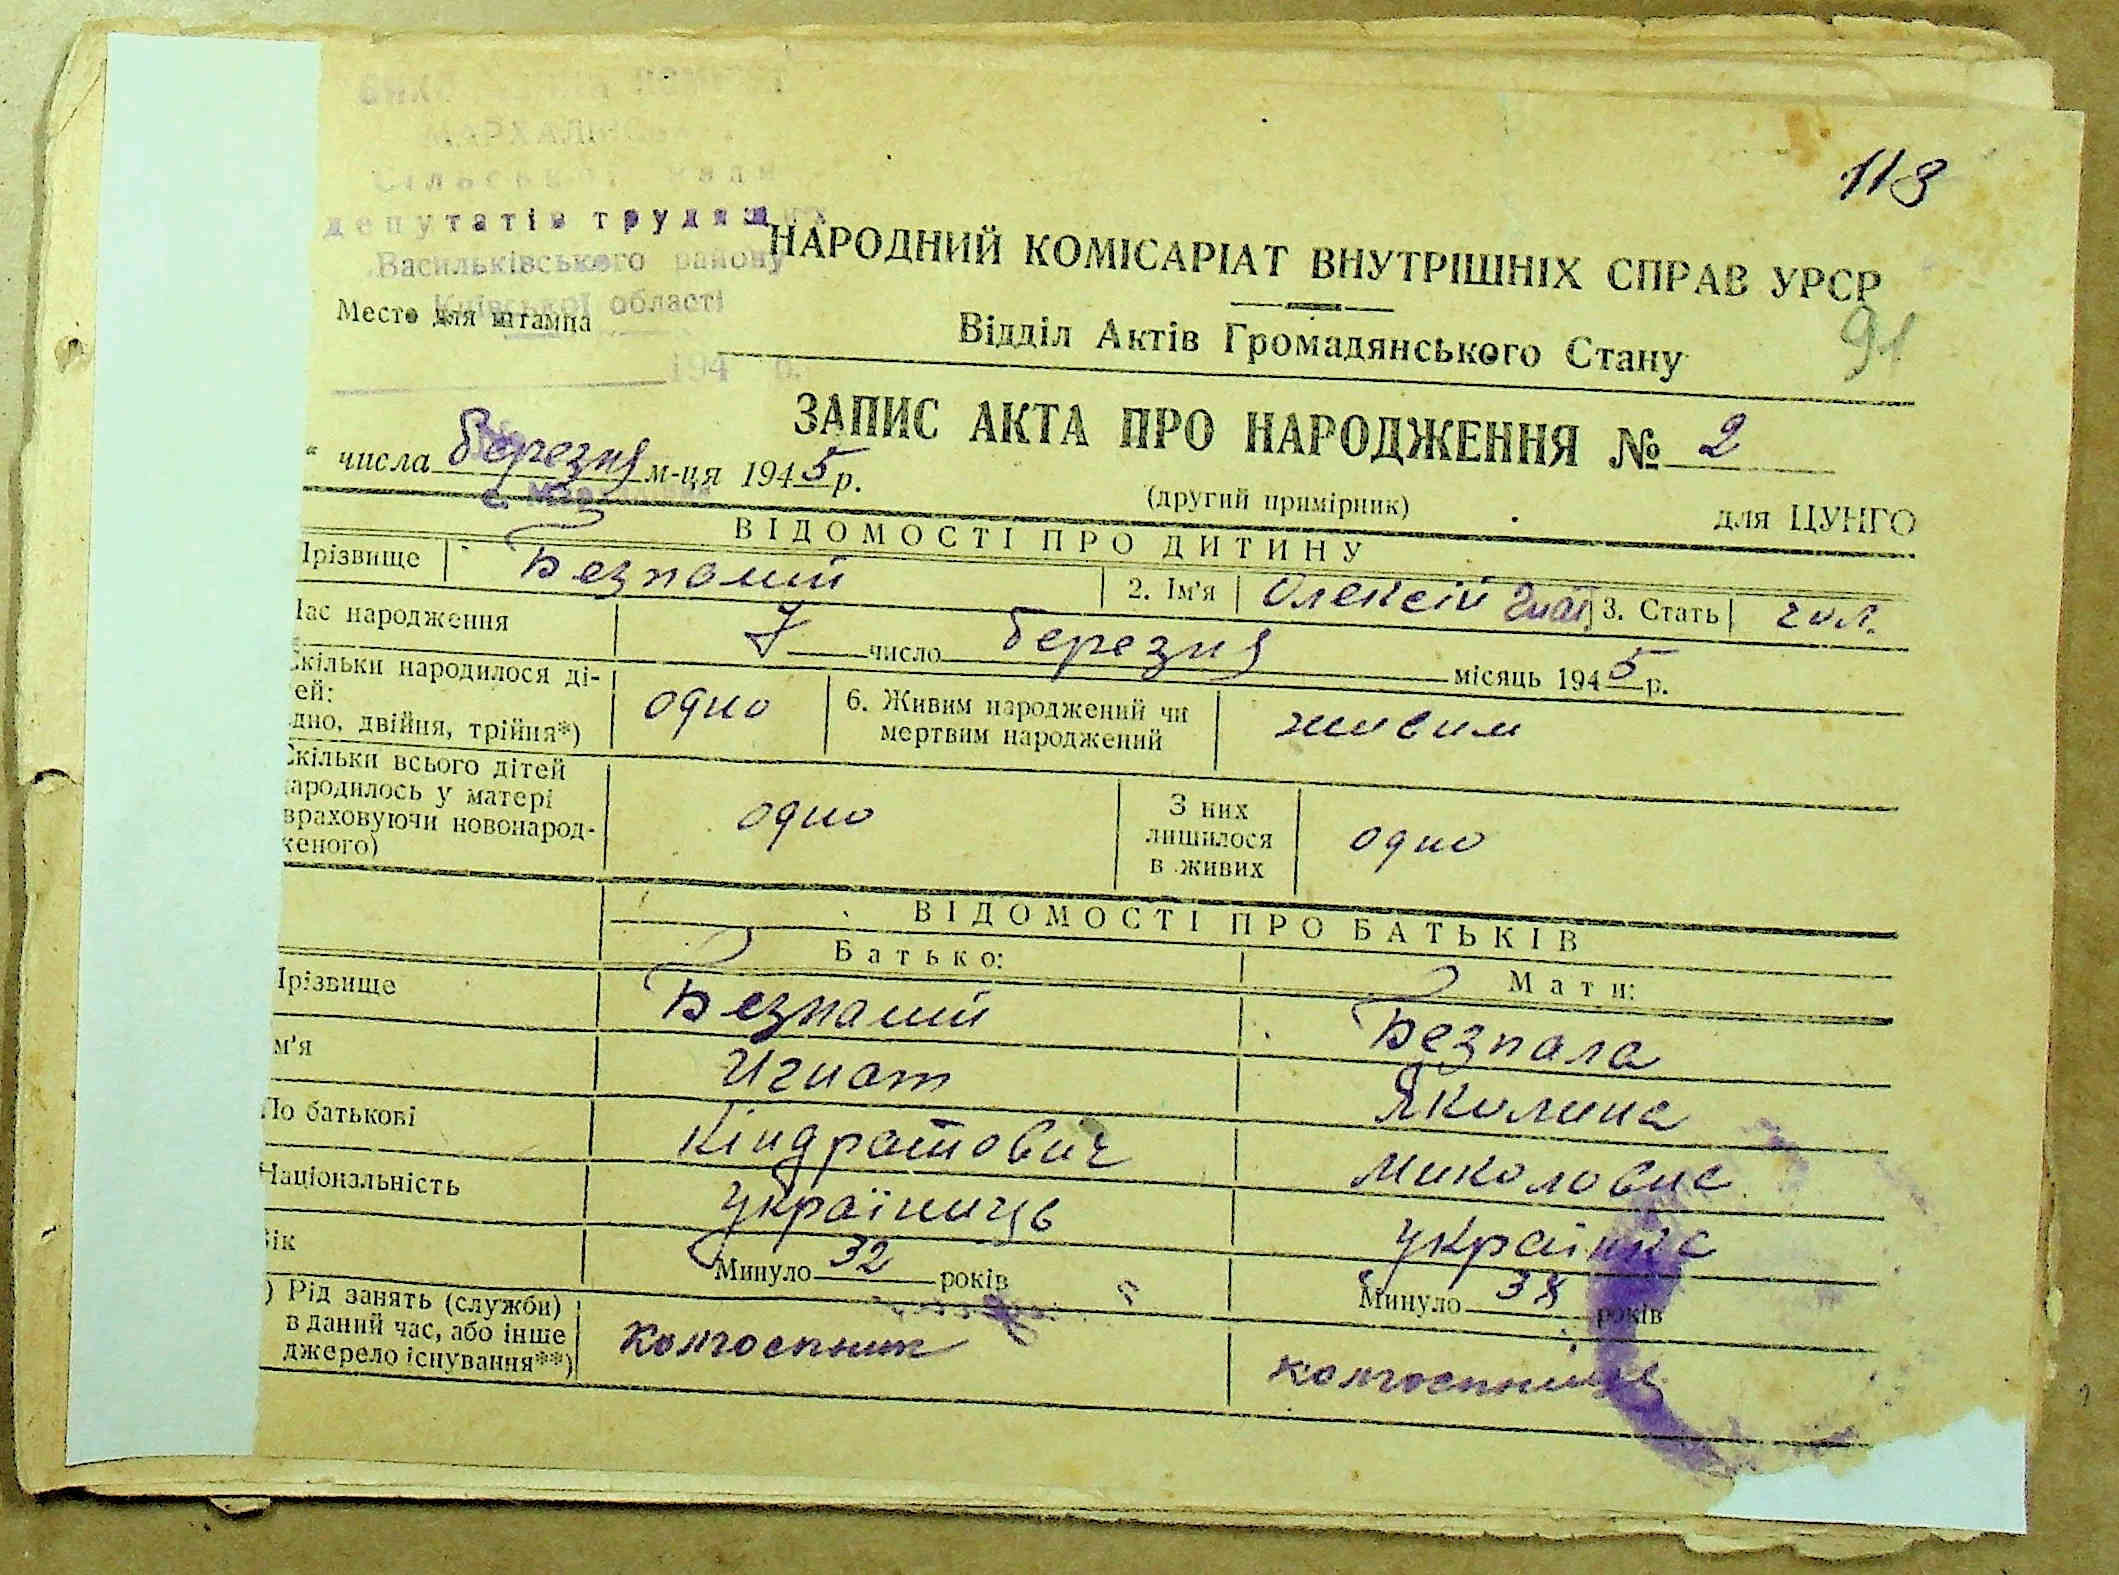 118
МАРХАЛІВСЬК
Сільської ради
депутатів трудящих
Васильківського району
Київської області
НАРОДНИЙ КОМІСАРІАТ ВНУТРІШНІХ СПРАВ УРСР
Место для штампа
Відділ Актів Громадянського Стану
91
194 р.
ЗАПИС АКТА ПРО НАРОДЖЕННЯ № 2
" числа березня м-ця 1945 р.
(другий примірник)
для ЦУНГО
ВІДОМОСТІ ПРО ДИТИНУ
Прізвище Безпалий 2. Ім'я Олексій Гнат. 3. Стать чол.
Час народження 7 число березня місяць 1945 р.
Скільки народилося ді-
тей:
одно, двійня, трійня*) одно 6. Живим народжений чи
мертвим народжений живим
Скільки всього дітей
народилось у матері
враховуючи новонарод-
женого) одно З них
лишилося
в живих одно
ВІДОМОСТІ ПРО БАТЬКІВ
Батько: Мати:
Прізвище Безпалий Безпала
м'я Игнат Якилина
По батькові Кіндратович Миколовна
Національність українець українка
Вік Минуло 32 років Минуло 38 років
) Рід занять (служби)
в даний час, або інше
джерело існування**) колгоспник колгоспниця